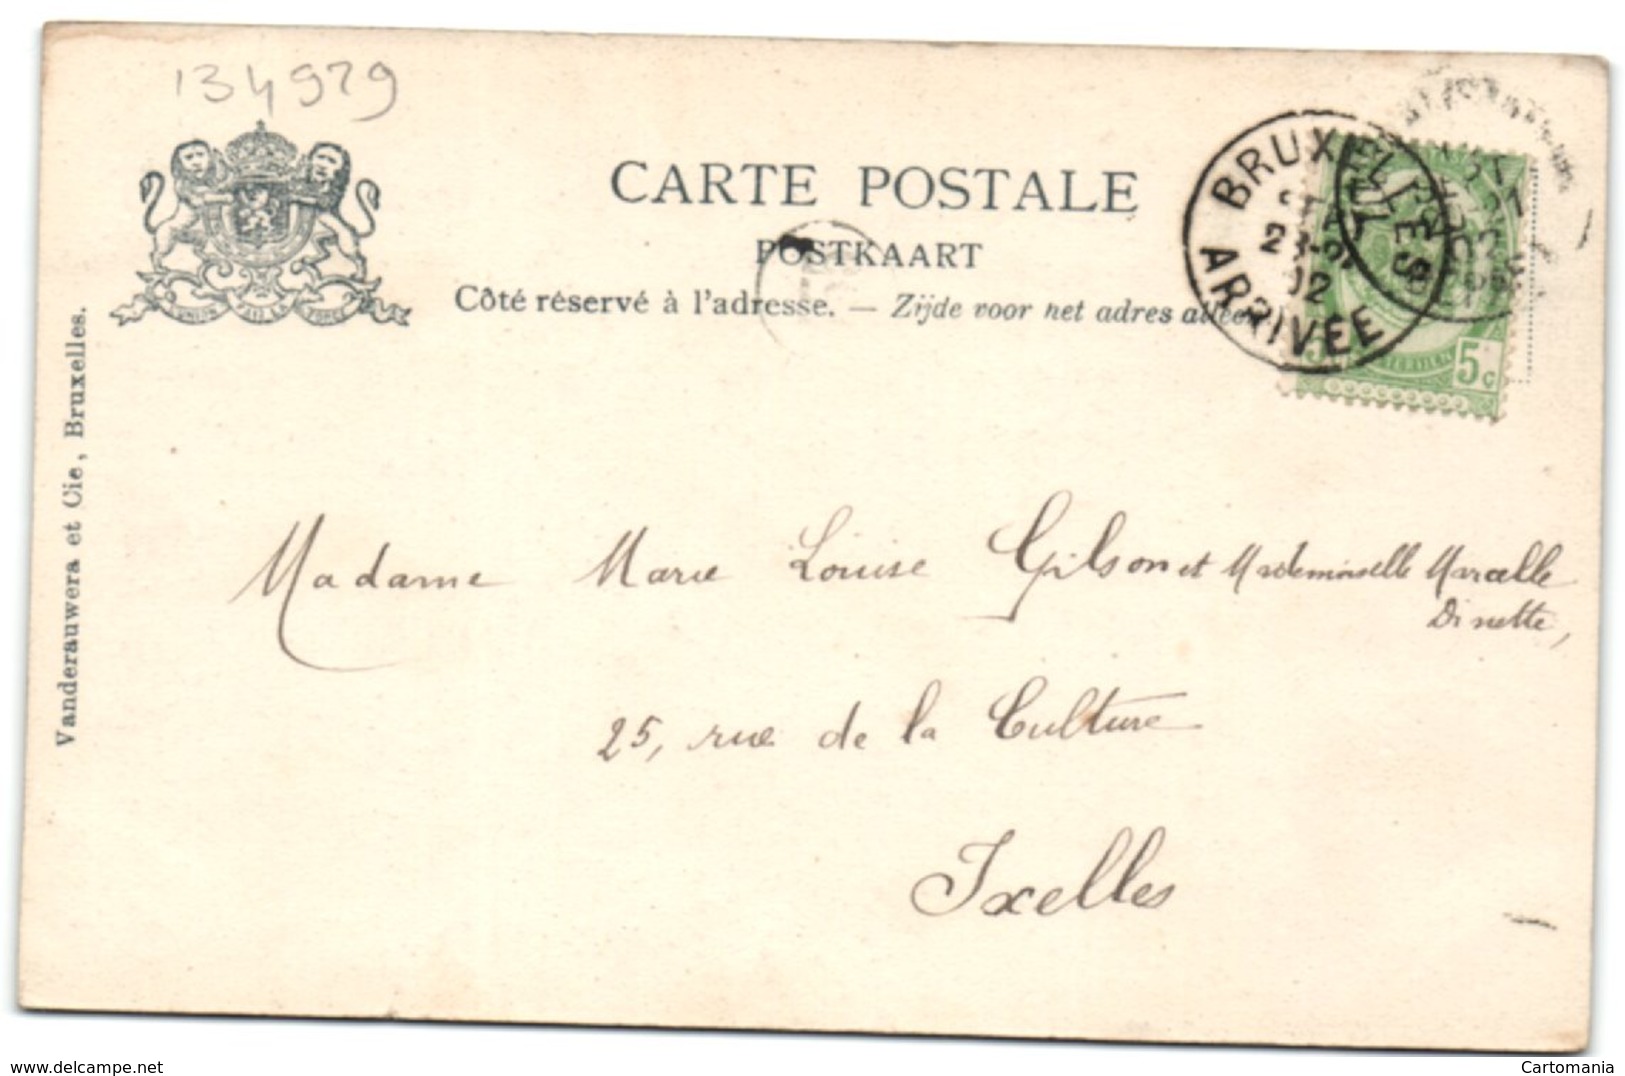 134979
CARTE POSTALE
POSTKAART
Côté réservé à l'adresse. — Zijde voor het adres alleen
BRUXELLES
ARRIVÉE
5c
Vanderauwera et Cie, Bruxelles.
Madame Marie Louise Gilson et Mademoiselle Marcelle
Dinette,
25, rue de la Culture
Ixelles
delcampe.net
Cartomania